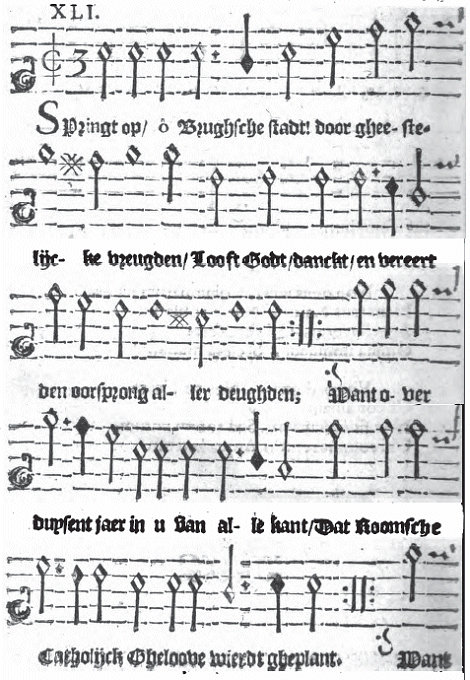 XLI.
SPringt op/ ô Brughsche stadt! door ghee- ste-
lijc- ke vreugden/ Looft Godt/danckt/en vereert
den oorsprong al- ler deughden; Want o- ver
duysent jaer in u van al- le kant/Dat Roomsche
Catholijck Gheloove wierdt gheplant. Want